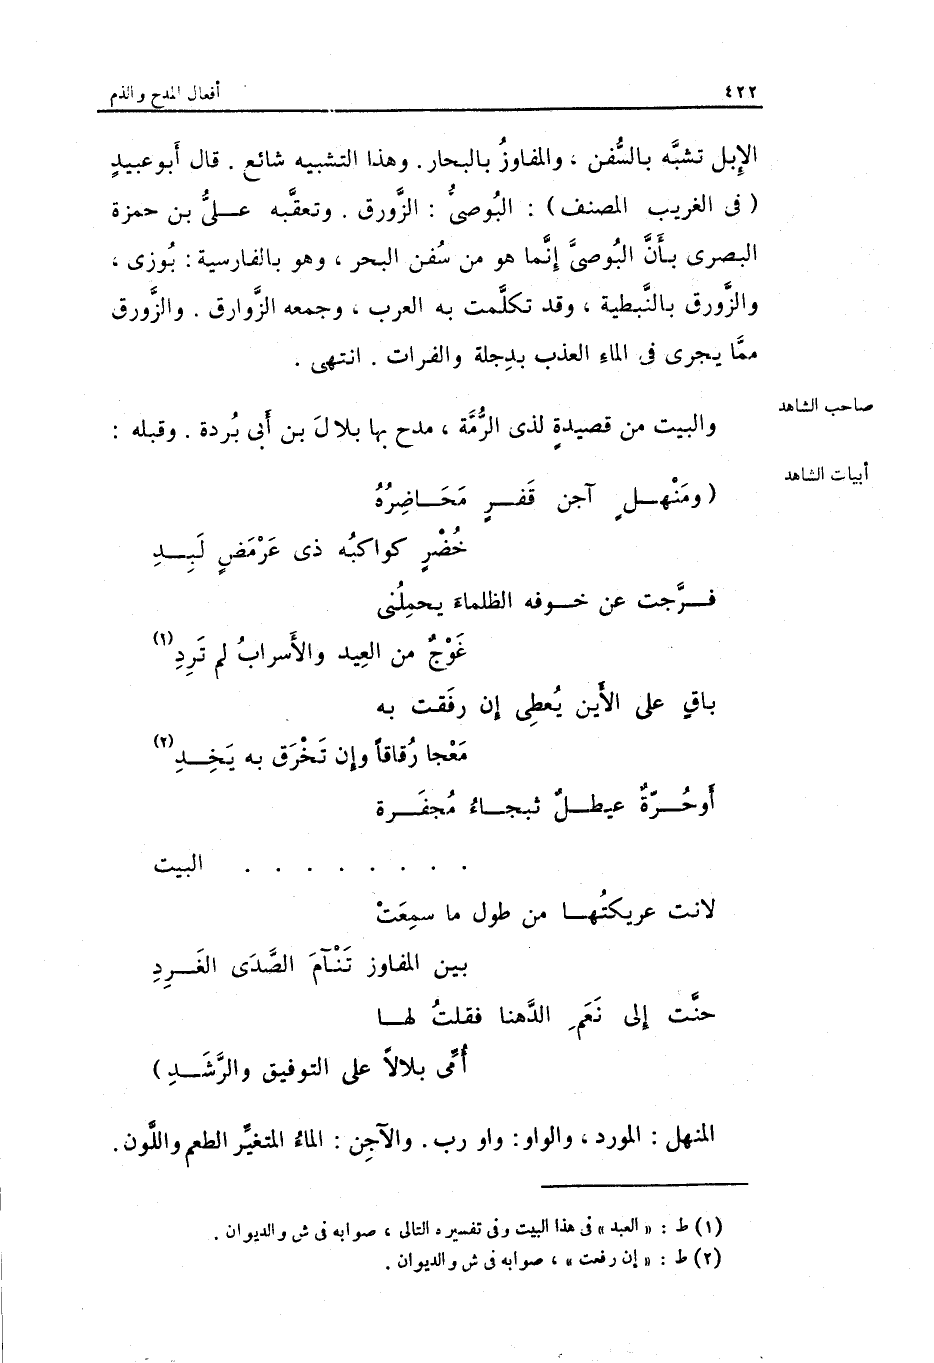 ٤٢٢
أفعال المدح والذم
الإبل تشبَّه بالسُّفن ، والمفاوزُ بالبحار . وهذا التشبيه شائع . قال أبو عبيدٍ
( فى الغريب المصنف ) : البُوصىُّ : الزَّورق . وتعقَّبه علىُّ بن حمزة
البصرى بأَنَّ البُوصىَّ إنَّما هو من سُفن البحر ، وهو بالفارسية : بُوزى ،
والزَّورق بالنَّبطية ، وقد تكلَّمت به العرب ، وجمعه الزَّوارق . والزَّورق
ممَّا يجرى فى الماء العذب بدِجلة والفرات . انتهى .
صاحب الشاهد
والبيت من قصيدةٍ لذى الرُّمَّة ، مدح بها بلالَ بن أَبى بُردة . وقبله :
أبيات الشاهد
( ومَنْهلٍ آجن قَفرٍ مَحَاضِرُهُ
خُضْرٍ كواكبُه ذى عَرْمَضٍ لَبِدِ
فرَّجت عن خوفه الظلماءَ يحملُنى
غَوْجٌ من العِيد والأَسرابُ لم تَرِدِ (١)
باقٍ على الأَين يُعطِى إن رفَقت به
مَعْجا رُقاقاً وإن تَخْرَق به يَخِدِ (٢)
أَوحُرّةٌ عيطلٌ ثبجاءُ مُجفَرة
. . . . . . . . البيت
لانت عريكتُها من طول ما سمِعَتْ
بين المفاوز تَنْآمَ الصَّدَى الغَرِدِ
حنَّت إلى نَعَمِ الدَّهنا فقلتُ لها
أُمِّى بلالاً على التوفيق والرَّشَدِ )
المنهل : المورد ، والواو : واو رب . والآجن : الماءُ المتغيِّر الطعم واللَّون .
(١) ط : « العبد » فى هذا البيت وفى تفسيره التالى ، صوابه فى ش والديوان .
(٢) ط : « إن رفعت » ، صوابه فى ش والديوان .